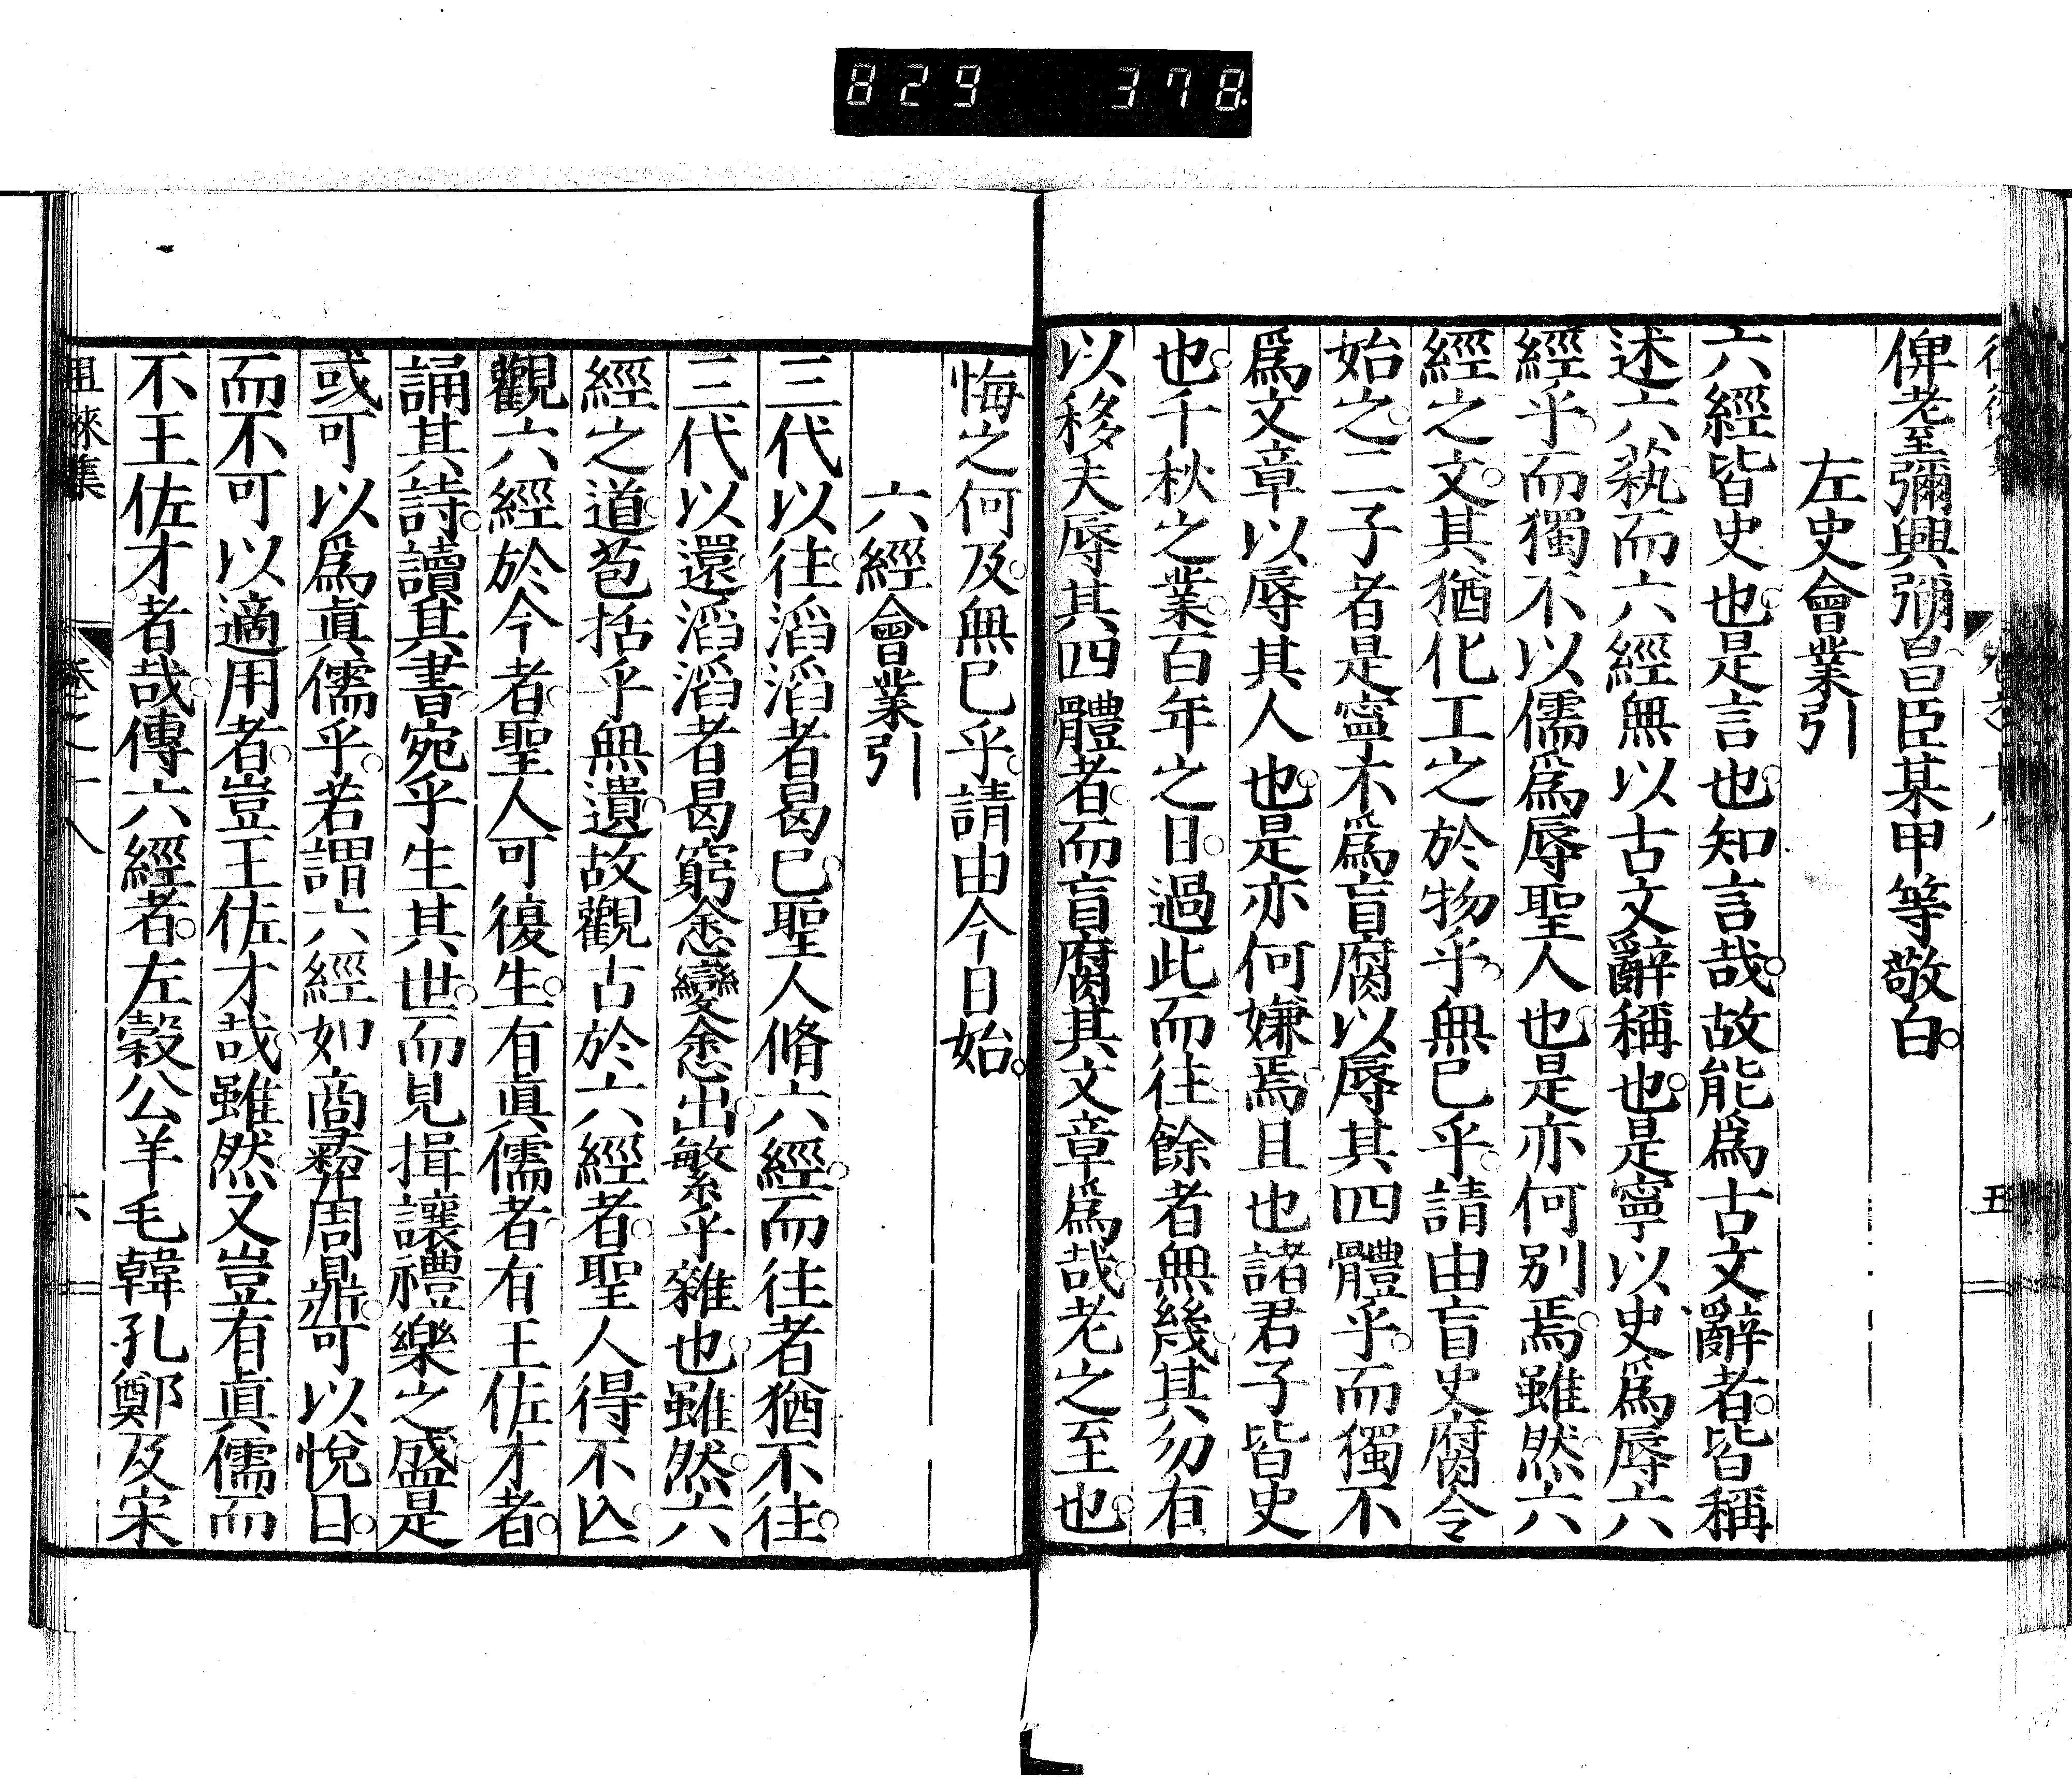 829 378
俾老至彌興彌昌臣某甲等敬白。
左史會業引
六經皆史也。是言也。知言哉。故能爲古文辭者。皆稱
述六藝。而六經無以古文辭稱也。是寧以史爲辱六
經乎。而獨不以儒爲辱聖人也。是亦何別焉。雖然。六
經之文。其猶化工之於物乎。無已乎。請由盲史腐令
始之。二子者是寧不爲盲腐以辱其四體乎。而獨不
爲文章以辱其人也。是亦何嫌焉。且也諸君子皆史
也。千秋之業。百年之日。過此而往。餘者無幾。其勿有
以移夫辱其四體者。而盲腐其文章爲哉。老之至也。
悔之何及。無已乎。請由今日始。
六經會業引
三代以往。滔滔者曷已。聖人脩六經。而往者猶不往。
三代以還。滔滔者曷窮。悆變悆出。繁乎雜也。雖然。六
經之道。苞括乎無遺。故觀古於六經者。聖人得不亾。
觀六經於今者。聖人可復生。有眞儒者。有王佐才者。
誦其詩。讀其書。宛乎生其世。而見揖讓禮樂之盛。是
或可以爲眞儒乎。若謂六經如商彝周鼎。可以悅目。
而不可以適用者。豈王佐才哉。雖然。又豈有眞儒而
不王佐才者哉。傳六經者。左穀公羊毛韓孔鄭及宋
徂徠集 卷之十八 六